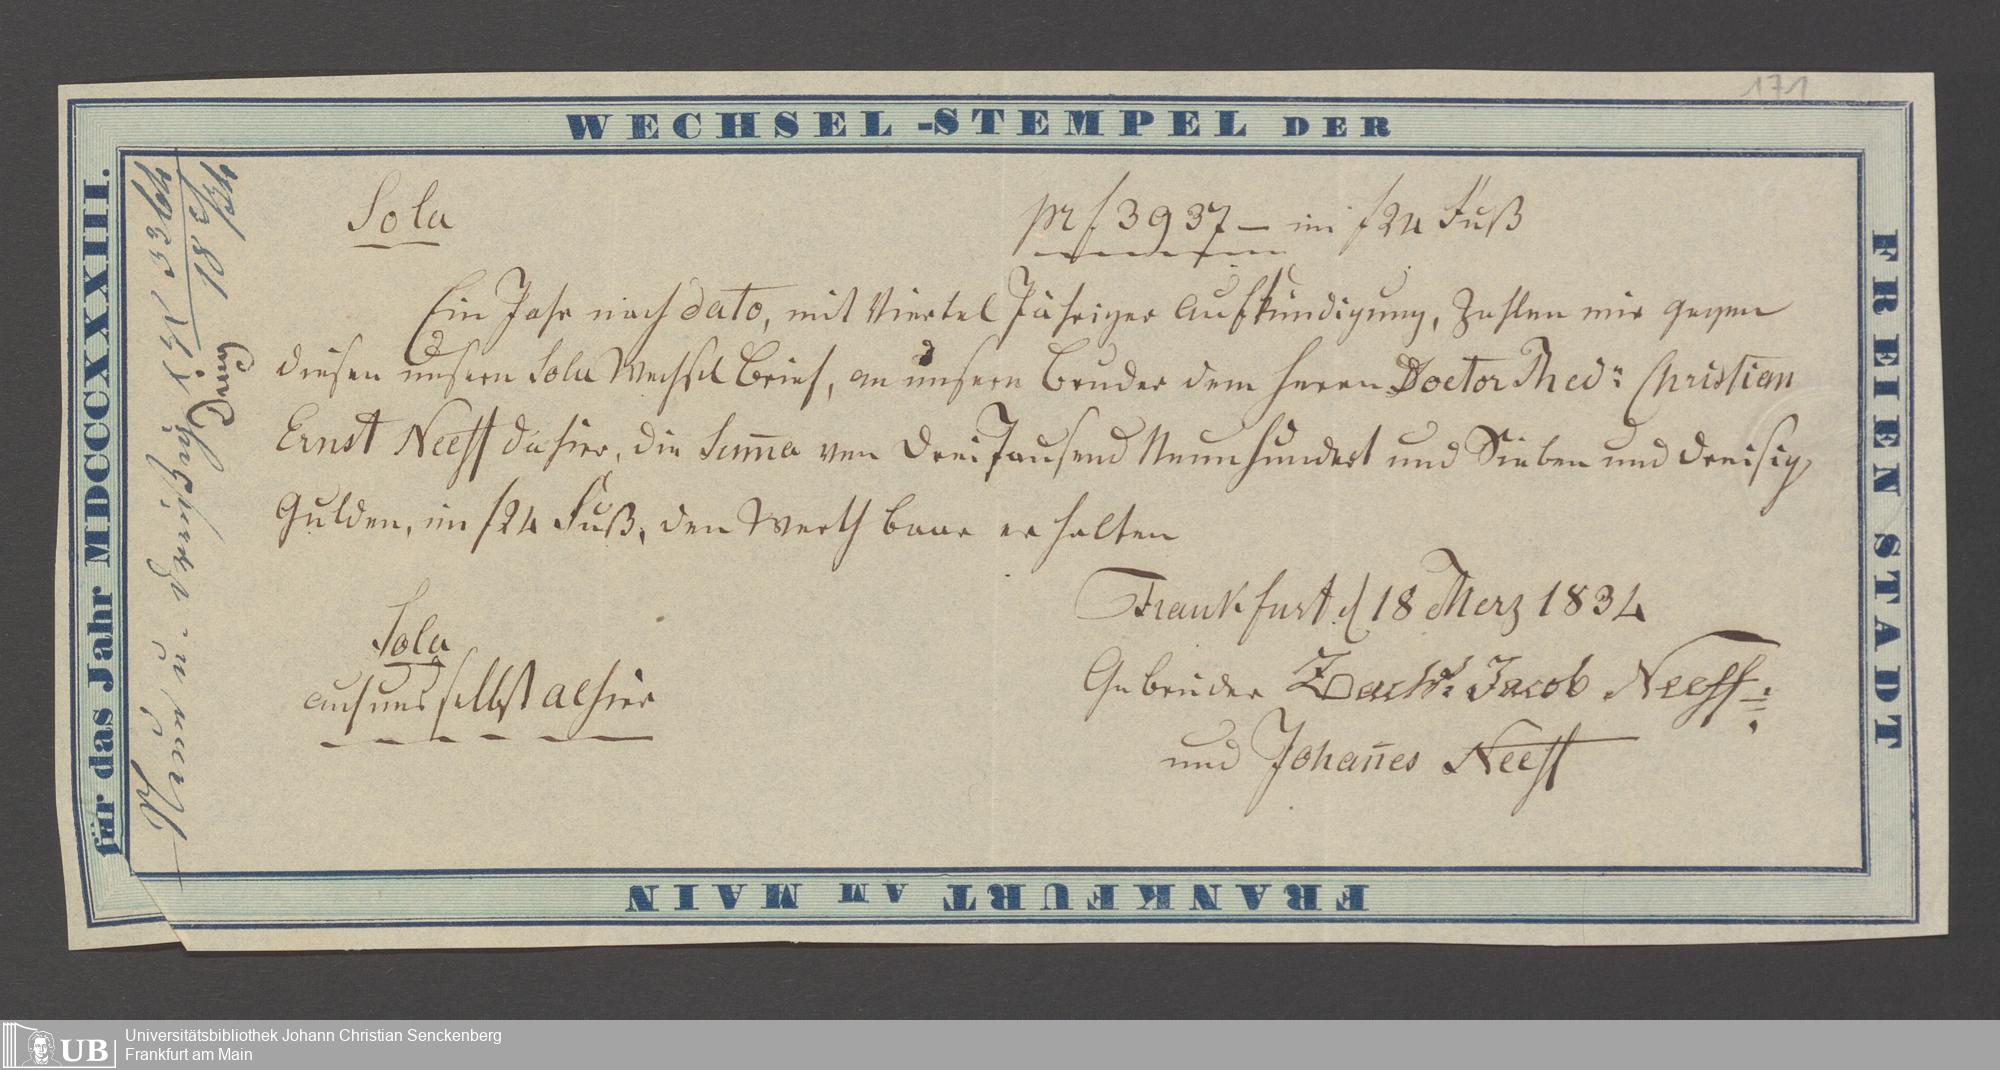 171
WECHSEL-STEMPEL DER
FREIEN STADT
FRANKFURT AM MAIN
für das Jahr MDCCCXXXIII.
Sola
pr f 3937 — im f 24 Fuß
Ein Jahr nach dato, mit Viertel Jähriger Aufkündigung, Zahlen wir gegen
diesen unsern Sola Wechsel Brief, an unsern Bruder dem Herrn Doctor Med: Christian
Ernst Neeff dahier, die Suma von Drei Tausend Neunhundert und Sieben und dreisig
Gulden, im f 24 Fuß, den Werth baar erhalten
Frankfurt d 18 Merz 1834
Sola
auf uns selbst alhier
Gebrüder Zach: Jacob Neeff:
und Johañes Neeff
3364
18 3/4 34
UB
Universitätsbibliothek Johann Christian Senckenberg
Frankfurt am Main